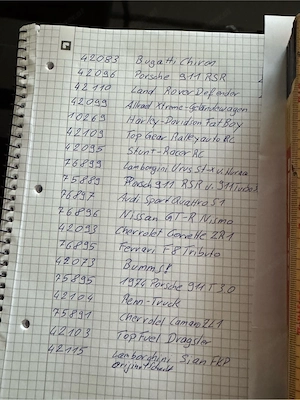 42083 Bugatti Chiron
42096 Porsche 911 RSR
42110 Land Rover Defender
42099 Allrad Xtreme-Geländewagen
10269 Harley-Davidson Fat Boy
42109 Top Gear Ralleyauto RC
42095 Stunt-Racer RC
76899 Lamborgini Urus ST-X u. Huraca
75889 RSR u. 911 Turbo
76897 Audi Sport Quattro S1
76896 Nissan GT-R Nismo
42093 Chevrolet Corvette ZR1
76895 Ferrari F8 Tributo
42073
75895 1974 Porsche 911 T 3.0
42104 Rem-Truck
75891 Chevrolet Camaro ZL1
42103 Top Fuel Dragster
42115 Lamborghini Sian FKP